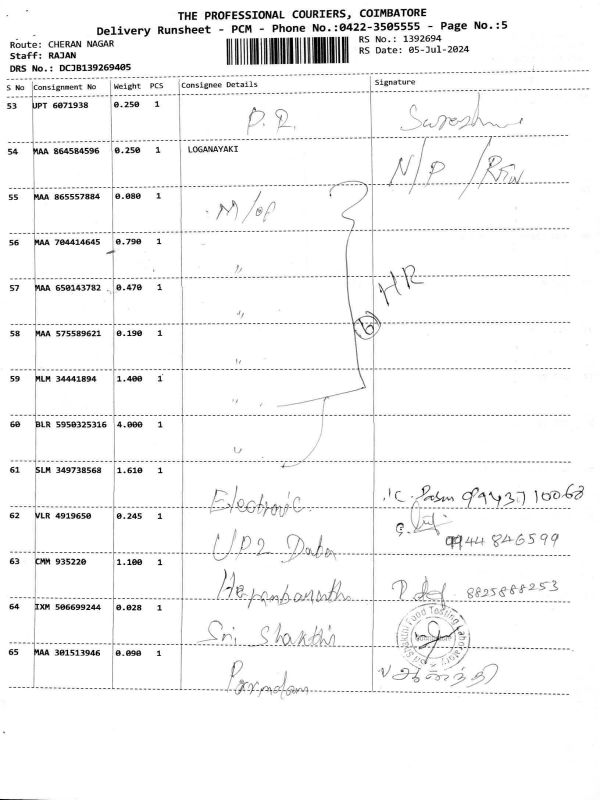 THE PROFESSIONAL COURIERS, COIMBATORE
Delivery Runsheet - PCM - Phone No.:0422-3505555 - Page No.:5
Route: CHERAN NAGAR
RS No.: 1392694
Staff: RAJAN
RS Date: 05-Jul-2024
DRS No.: DCJB139269405
S No Consignment No Weight PCS Consignee Details Signature
53 UPT 6071938 0.250 1
P. R.
54 MAA 864584596 0.250 1 LOGANAYAKI
N/P
55 MAA 865557884 0.080 1
M/of
56 MAA 704414645 0.790 1
〃
HR
57 MAA 650143782 0.470 1
〃
6
58 MAA 575589621 0.190 1
〃
59 MLM 34441894 1.400 1
〃
60 BLR 5950325316 4.000 1
〃
61 SLM 349738568 1.610 1
Electronic
62 VLR 4919650 0.245 1
9944846599
UP2 Data
63 CMM 935220 1.100 1
8825888253
64 IXM 506699244 0.028 1
Sri Shakthi
Sri Shakthi Food Testing Laboratory
65 MAA 301513946 0.090 1